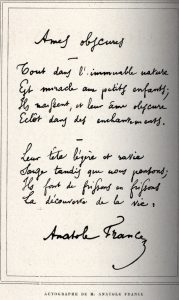 Ames obscures
Tout dans l'immuable nature
Est miracle aux petits enfants;
Ils naissent, et leur âme obscure
Éclot dans des enchantements.
Leur tête légère et ravie
Songe tandis que nous pensons;
Ils font de frissons en frissons
La découverte de la vie.
Anatole France
AUTOGRAPHE DE M. ANATOLE FRANCE